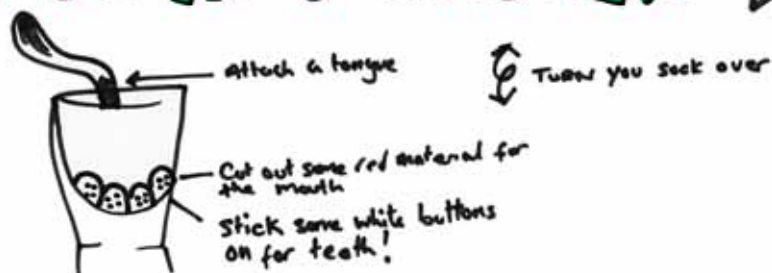 Attach a tongue
TURN YOU SOCK OVER
Cut out some red material for
the mouth
Stick some white buttons
on for teeth!